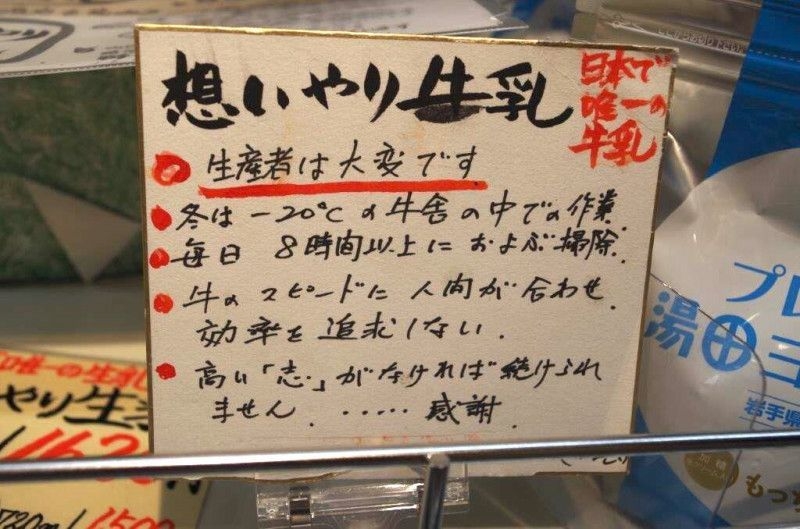 想いやり牛乳
日本で
唯一の
牛乳
生産者は大変です
冬は-20℃の牛舎の中での作業.
毎日 8時間以上におよぶ掃除.
牛のスピードに人間が合わせ.
効率を追求しない.
高い「志」がなければ続けられ
ません ..... 感謝.
唯一の生乳
やり生
720ml
1500
プレ
湯田ヨ
岩手県
もっち